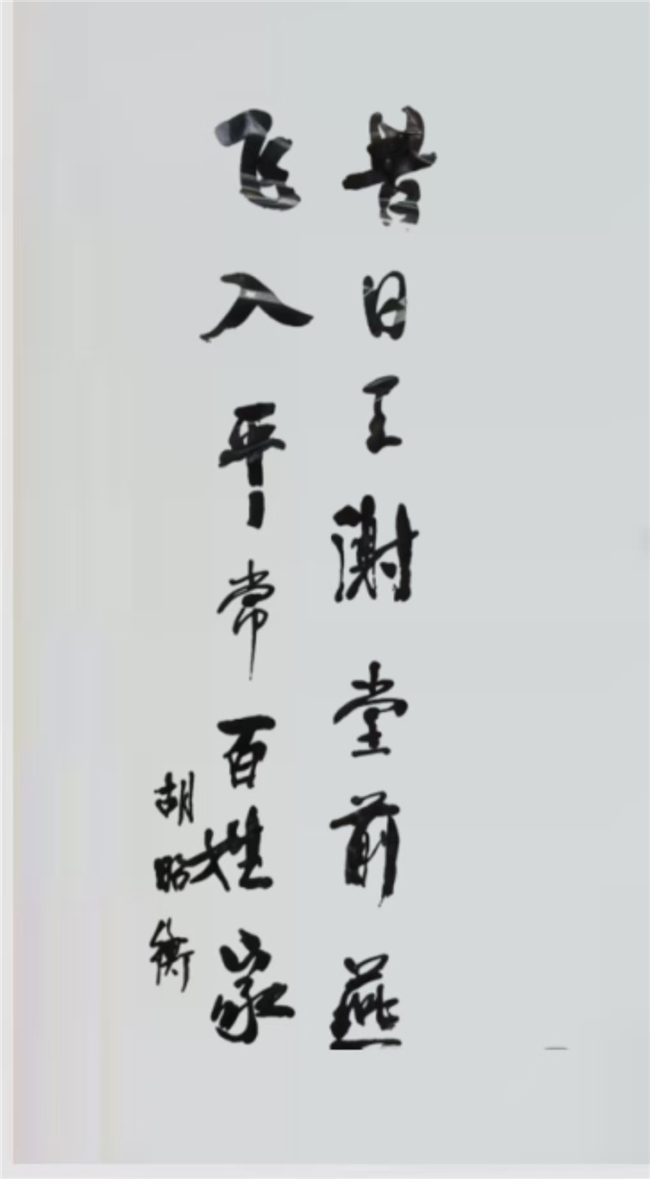 昔日王谢堂前燕
飞入平常百姓家
胡昭衡